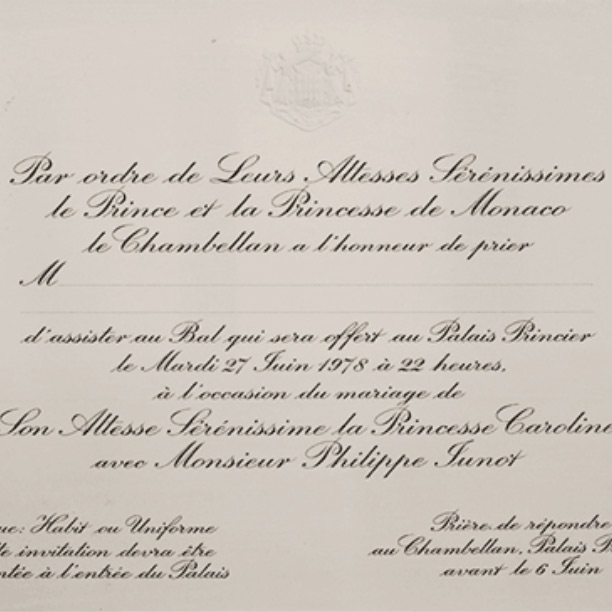 Par ordre de Leurs Altesses Sérénissimes
le Prince et la Princesse de Monaco
le Chambellan a l'honneur de prier
M
d'assister au Bal qui sera offert au Palais Princier
le Mardi 27 Juin 1978 à 22 heures,
à l'occasion du mariage de
Son Altesse Sérénissime la Princesse Caroline
avec Monsieur Philippe Junot
Habit ou Uniforme
invitation devra être
à l'entrée du Palais
Prière de répondre
au Chambellan, Palais
avant le 6 Juin